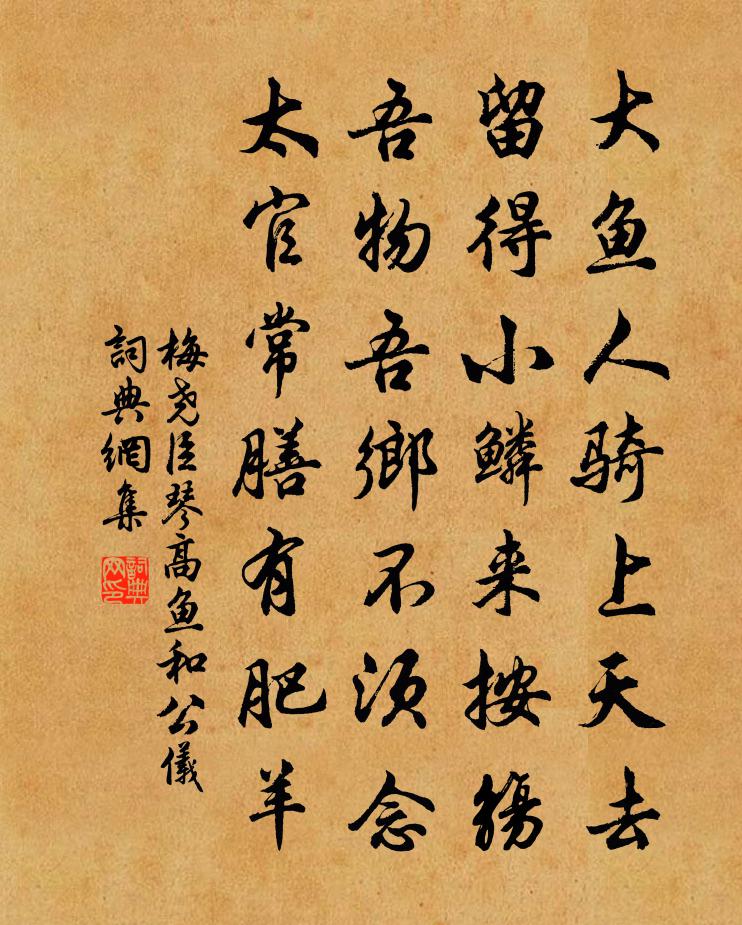 大鱼人骑上天去
留得小鳞来按觞
吾物吾鄉不须念
太官常膳有肥羊
梅尧臣琴高鱼和公儀
詞典網集
詞典网印